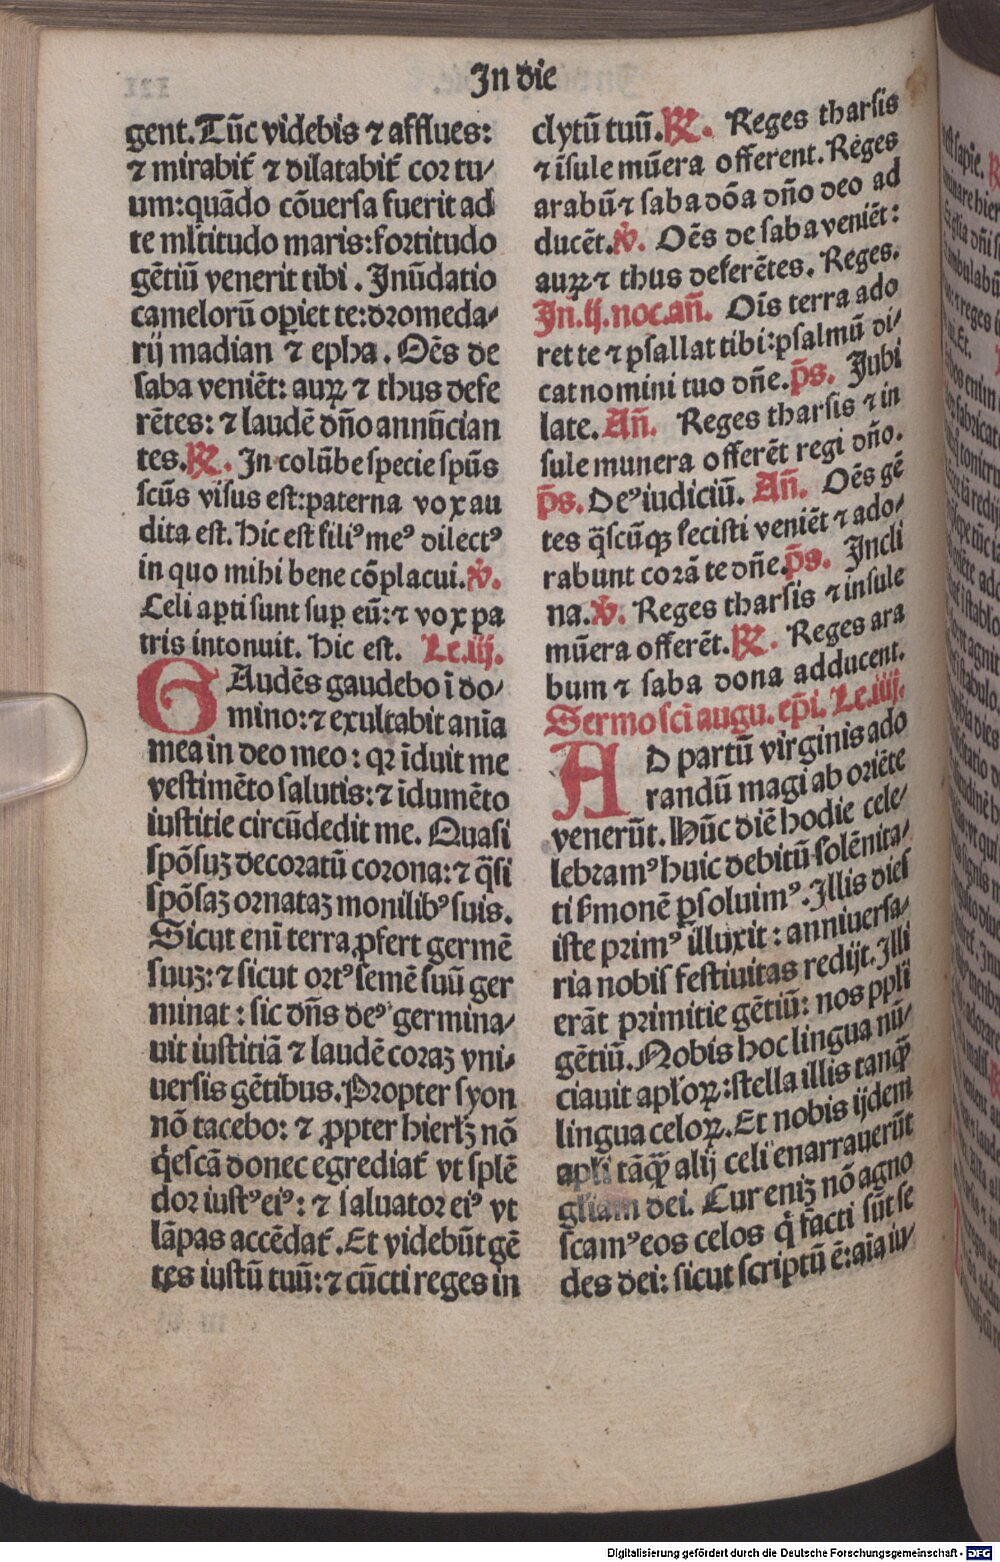 In die
gent. Tūc videbis ⁊ afflues:
⁊ mirabit̄ ⁊ dilatabit̄ cor tu/
um: quādo cōuersa fuerit ad
te ml̄titudo maris: fortitudo
gētiū venerit tibi. Inūdatio
camelorū oꝑiet te: dromeda/
rij madian ⁊ epha. Oēs de
saba veniēt: auꝝ ⁊ thus defe
rētes: ⁊ laudē dn̄o annūcian
tes. ℟. In colūbe specie spūs
scūs visus est: paterna vox au
dita est. Hic est filiꝰ meꝰ dilectꝰ
in quo mihi bene cōplacui. ℣.
Celi aꝑti sunt suꝑ eū: ⁊ vox pa
tris intonuit. Hic est. Le.iij.
GAudēs gaudebo ī do/
mino: ⁊ exultabit aīa
mea in deo meo: qꝛ īduit me
vestimēto salutis: ⁊ īdumēto
iustitie circūdedit me. Quasi
spōsuꝫ decoratū corona: ⁊ q̄si
spōsaꝫ ornataꝫ monilibꝰ suis.
Sicut eni terra ꝓfert germē
suuꝫ: ⁊ sicut ortꝰ semē suū ger
minat: sic dn̄s deꝰ germina/
uit iustitiā ⁊ laudē coraꝫ vni/
uersis gētibus. Propter syon
nō tacebo: ⁊ ꝓpter hierlꝫ nō
q̇escā donec egrediat̄ vt splē
dor iustꝰ eiꝰ: ⁊ saluator eiꝰ vt
lāpas accēdat̄. Et videbūt gē
tes iustū tuū: ⁊ cūcti reges in
clytū tuū. ℟. Reges tharsis
⁊ īsule mūera offerent. Reges
arabū ⁊ saba dōa dn̄o deo ad
ducēt. ℣. Oēs de saba veniēt:
auꝝ ⁊ thus deferētes. Reges.
In.ij.noc.an̄. Oīs terra ado
ret te ⁊ psallat tibi: psalmū di/
cat nomini tuo dn̄e. p̄s. Jubi
late. An̄. Reges tharsis ⁊ in
sule munera offerēt regi dn̄o.
p̄s. Deꝰ iudiciū. An̄. Oēs gē
tes q̄scūqꝫ fecisti veniēt ⁊ ado/
rabunt corā te dn̄e. p̄s. Incli
na. ℣. Reges tharsis ⁊ insule
mūera offerēt. ℟. Reges ara
bum ⁊ saba dona adducent.
Sermo scī augu. ep̄i. Le.iiij.
AD partū virginis ado
randū magi ab oriēte
venerūt. Hūc diē hodie cele/
bramꝰ huic debitū solēnita/
ti ẜmonē ꝑsoluimꝰ. Illis dies
iste primꝰ illuxit: anniuersa/
ria nobis festiuitas redijt. Illi
erāt primitie gētiū: nos ppli
gētiū. Nobis hoc lingua nū/
ciauit apl̄oꝝ: stella illis tanqꝫ̄
lingua celoꝝ. Et nobis ijdem
apl̄i tāqꝫ̄ alij celi enarrauerūt
gliam dei. Cur eniꝫ nō agno
scamꝰ eos celos q̇ facti sūt se
des dei: sicut scriptū ē: aīa iu/